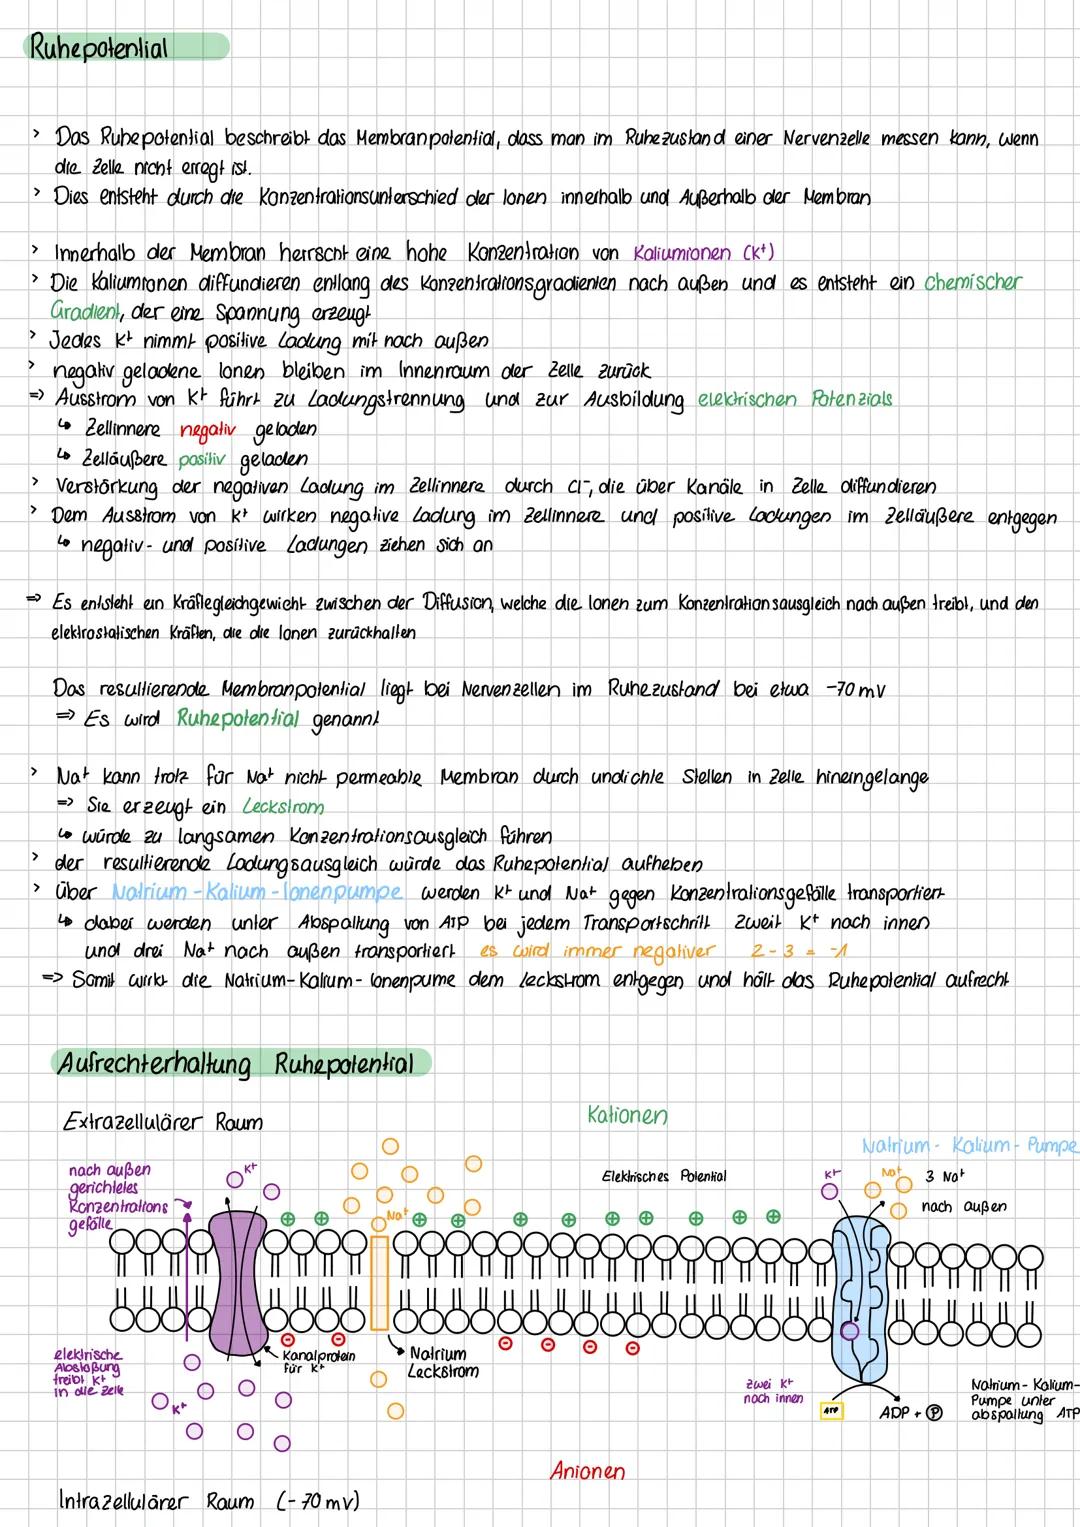 Ruhepotential
> Das Ruhepotential beschreibt das Membranpotential, dass man im Ruhezustand einer Nervenzelle messen kann, wenn
die Zelle nicht erregt ist.
> Dies entsteht durch die Konzentrationsunterschied der Ionen innerhalb und Außerhalb der Membran
> Innerhalb der Membran herrscht eine hohe Konzentration von Kaliumionen (K⁺)
> Die Kaliumionen diffundieren entlang des Konzentrationsgradienten nach außen und es entsteht ein chemischer
Gradient, der eine Spannung erzeugt
> Jedes K⁺ nimmt positive Ladung mit nach außen
> negativ geladene Ionen bleiben im Innenraum der Zelle zurück
⇒ Ausstrom von K⁺ führt zu Ladungstrennung und zur Ausbildung elektrischen Potenzials
↳ Zellinnere negativ geladen
↳ Zelläußere positiv geladen
> Verstärkung der negativen Ladung im Zellinnere durch Cl⁻, die über Kanäle in Zelle diffundieren
> Dem Ausstrom von K⁺ wirken negative Ladung im Zellinnere und positive Ladungen im Zelläußere entgegen
↳ negativ- und positive Ladungen ziehen sich an
⇒ Es entsteht ein Kräftegleichgewicht zwischen der Diffusion, welche die Ionen zum Konzentrationsausgleich nach außen treibt, und den
elektrostatischen Kräften, die die Ionen zurückhalten
Das resultierende Membranpotential liegt bei Nervenzellen im Ruhezustand bei etwa -70 mV
⇒ Es wird Ruhepotential genannt
> Na⁺ kann trotz für Na⁺ nicht permeable Membran durch undichte Stellen in Zelle hineingelange
⇒ Sie erzeugt ein Leckstrom
↳ würde zu langsamen Konzentrationsausgleich führen
> der resultierende Ladungsausgleich würde das Ruhepotential aufheben
> über Natrium-Kalium-Ionenpumpe werden K⁺ und Na⁺ gegen Konzentrationsgefälle transportiert
↳ dabei werden unter Abspaltung von ATP bei jedem Transportschritt zweit K⁺ nach innen
und drei Na⁺ nach außen transportiert es wird immer negativer 2-3 = -1
⇒ Somit wirkt die Natrium-Kalium-Ionenpume dem Leckstrom entgegen und hält das Ruhepotential aufrecht
Aufrechterhaltung Ruhepotential
Extrazellulärer Raum
Kationen
Natrium-Kalium-Pumpe
nach außen
gerichteles
Konzentrations
gefälle
K⁺
Na⁺
Elektrisches Potential
K⁺
Na⁺
3 Na⁺
nach außen
⊕ ⊕ ⊕ ⊕ ⊕ ⊕ ⊕ ⊕ ⊕ ⊕ ⊕
⊖ ⊖ ⊖ ⊖ ⊖ ⊖
elektrische
Abstoßung
treibt K⁺
in die Zelle
K⁺
Kanalprotein
für K⁺
Natrium
Leckstrom
zwei K⁺
nach innen
ATP
ADP + Ⓟ
Natrium-Kalium-
Pumpe unter
abspaltung ATP
Anionen
Intrazellulärer Raum (-70 mV)